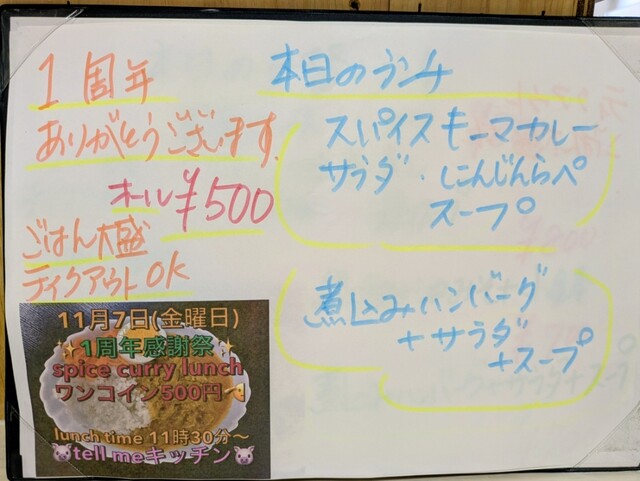 1周年
ありがとうございます。
オール¥500
ごはん大盛
テイクアウトOK
11月7日(金曜日)
1周年感謝祭
spice curry lunch
ワンコイン500円〜
lunch time 11時30分〜
tell meキッチン
本日のランチ
スパイスキーマカレー
サラダ・にんじんらぺ
スープ
煮込みハンバーグ
+サラダ
+スープ